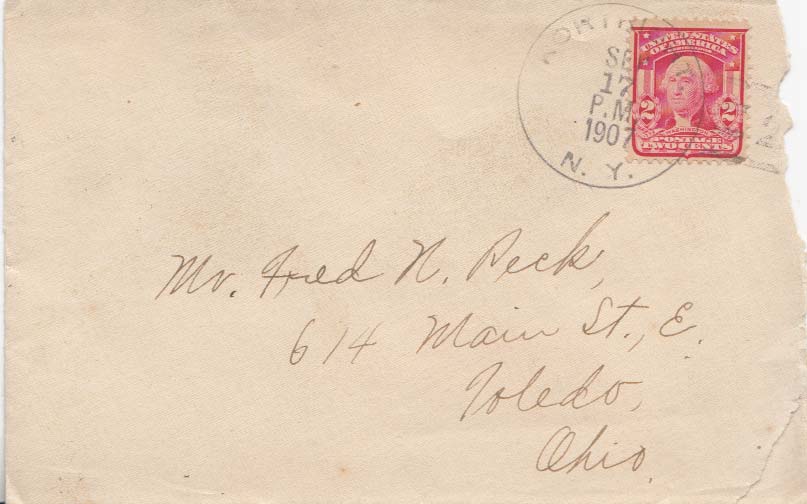 SE
17
P.M
1907
N. Y.
UNITED STATES
OF AMERICA
2 2
WASHINGTON
POSTAGE
TWO CENTS
Mr. Fred N. Peck,
614 Main St., E.
Toledo,
Ohio.